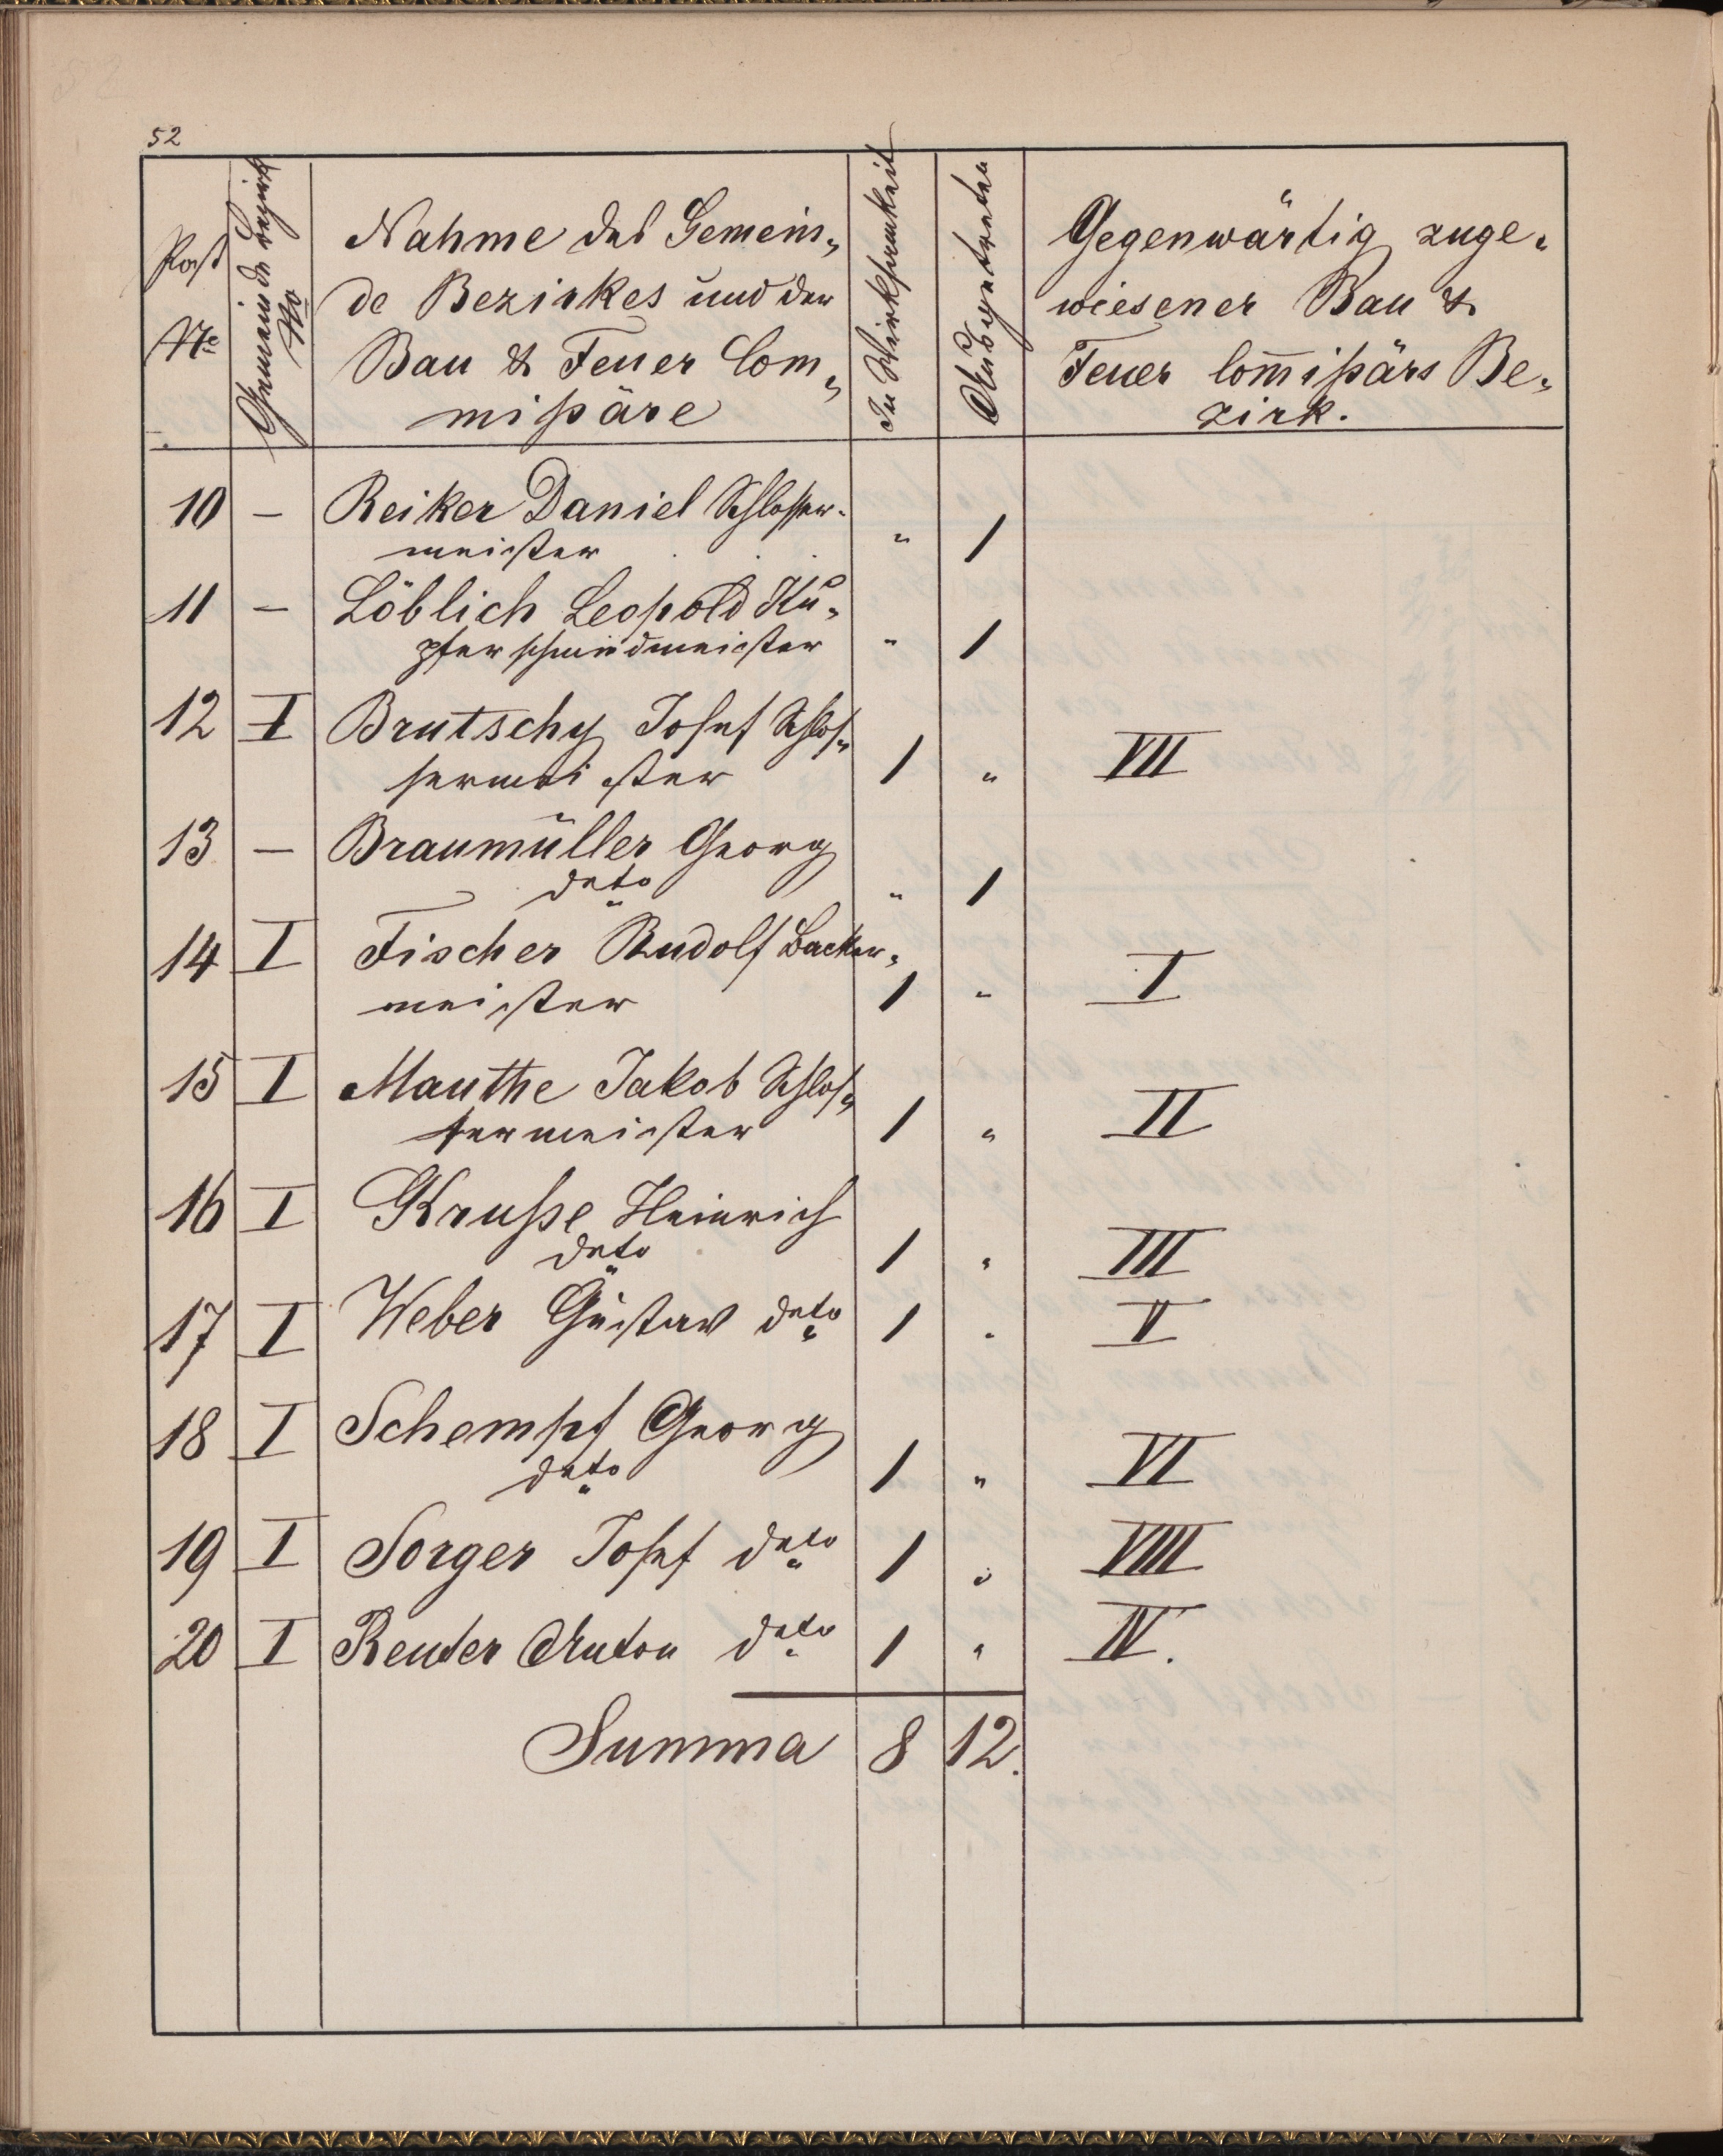 52
Post
No
Gemeinde Bezirk
No
Nahme des Gemein„
de Bezirkes und der
Bau & Feuer Com„
mißäre
In Wirksamkeit
Ausgetreten
Gegenwärtig zuge„
wiesener Bau &
Feuer Com̅ißärs Be„
zirk.
10 — Reiker Daniel Schlosser„
meister „ 1
11 — Löblich Leopold Ku„
pferschmiedmeister „ 1
12 I Brutschy Josef Schlos„
sermeister 1 „ VII
13 — Braumüller Georg
deto „ 1
14 I Fischer Rudolf Backer„
meister 1 „ I
15 I Mauthe Jakob Schlos„
sermeister 1 „ II
16 I Kruße Heinrich
deto 1 „ III
17 I Weber Gustav deto 1 „ V
18 I Schempf Georg
deto 1 „ VI
19 I Sorger Josef deto 1 „ VIII
20 I Reuter Anton deto 1 „ IV.
Summa 8 12.